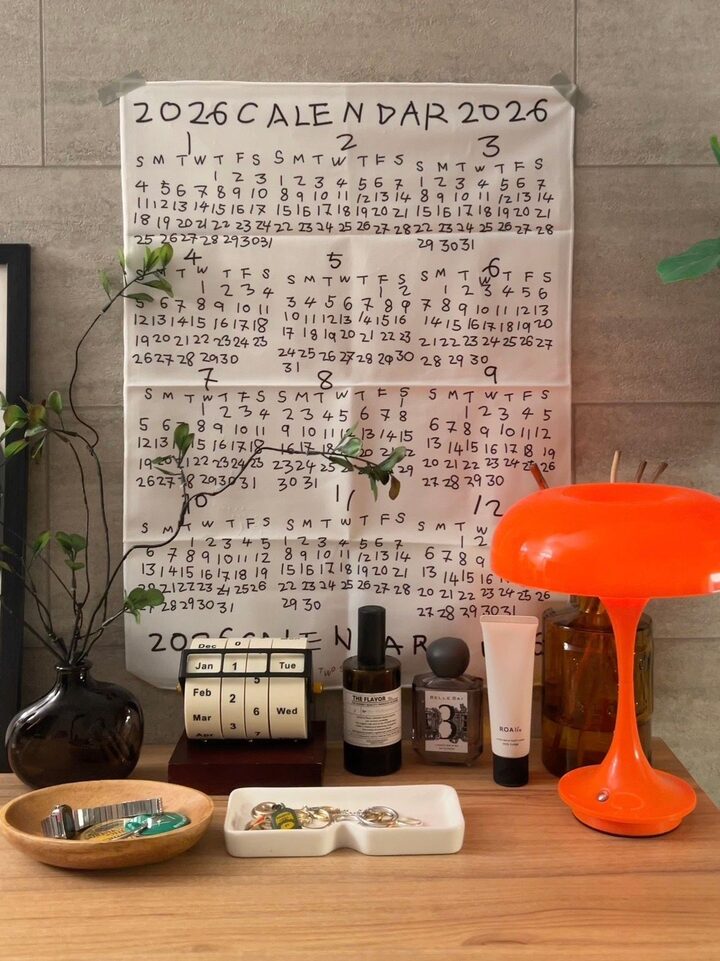 2026 CALENDAR 2026
1
S M T W T F S
1 2 3
4 5 6 7 8 9 10
11 12 13 14 15 16 17
18 19 20 21 22 23 24
25 26 27 28 29 30 31
2
S M T W T F S
1 2 3 4 5 6 7
8 9 10 11 12 13 14
15 16 17 18 19 20 21
22 23 24 25 26 27 28
3
S M T W T F S
1 2 3 4 5 6 7
8 9 10 11 12 13 14
15 16 17 18 19 20 21
22 23 24 25 26 27 28
29 30 31
4
S M T W T F S
1 2 3 4
5 6 7 8 9 10 11
12 13 14 15 16 17 18
19 20 21 22 23 24 25
26 27 28 29 30
5
S M T W T F S
1 2
3 4 5 6 7 8 9
10 11 12 13 14 15 16
17 18 19 20 21 22 23
24 25 26 27 28 29 30
31
6
S M T W T F S
1 2 3 4 5 6
7 8 9 10 11 12 13
14 15 16 17 18 19 20
21 22 23 24 25 26 27
28 29 30
7
S M T W T F S
1 2 3 4
5 6 7 8 9 10 11
12 13 14 15 16 17 18
19 20 21 22 23 24 25
26 27 28 29 30 31
8
S M T W T F S
1
2 3 4 5 6 7 8
9 10 11 12 13 14 15
16 17 18
23 24 25
30 31
9
S M T W T F S
1 2 3 4 5
6 7 8 9 10 11 12
13 14 15 16 17 18 19
20 21 22 23 24 25 26
27 28 29 30
10
S M T W T F S
1 2 3 4 5
6 7 8 9 10 11 12
13 14 15 16 17 18 19
20 21 22 23 24 25 26
28 29 30 31
11
S M T W T F S
1 2 3 4 5 6 7
8 9 10 11 12 13 14
15 16 17 18 19 20 21
22 23 24 25 26 27 28
29 30
12
S M T W
1 2
6 7 8 9
13 14 15
20 21 22 23 24 25 26
27 28 29 30 31
2026 CALENDAR
Dec
Jan 1 Tue
Feb 2 6 Wed
Mar 3
THE FLAVOR
BELLE BAI
ROA